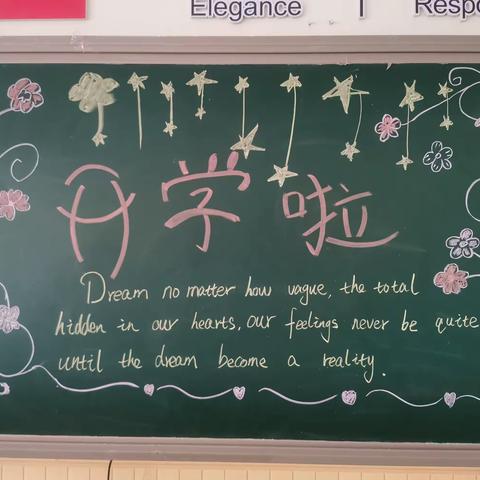 Elegance
Respo
开学啦
Dream no matter how vague, the total
hidden in our hearts, our feelings never be quite
until the dream become a reality.